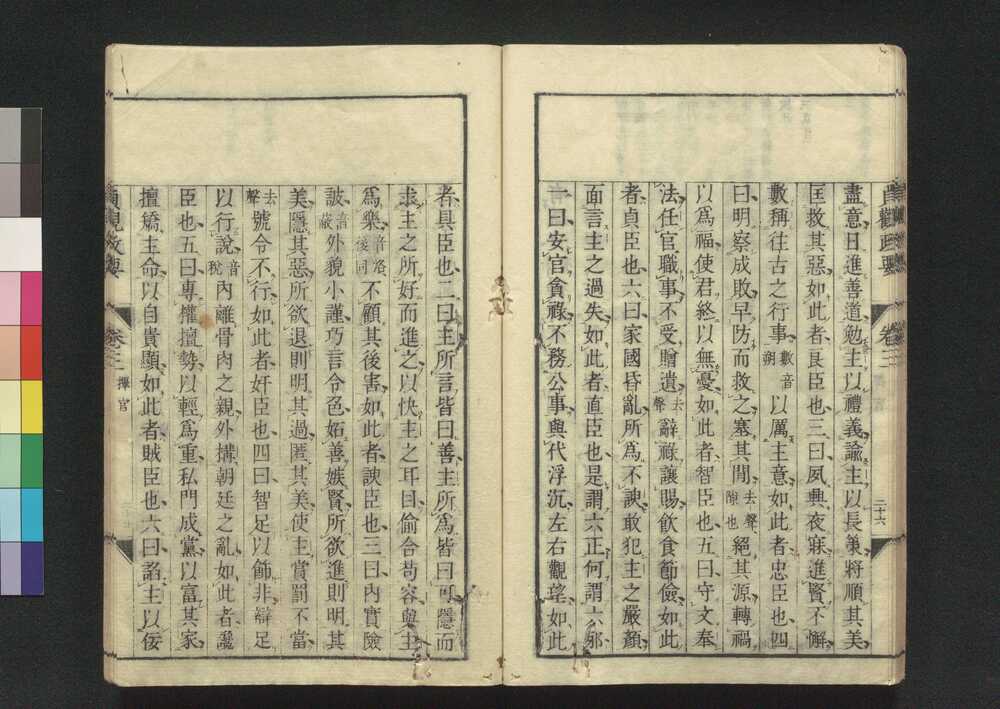 貞觀政要 卷三 擇官 二十六
盡意日進善道勉主以禮義諭主以長策將順其美
匡救其惡如此者良臣也三曰夙興夜寐進賢不懈
數稱往古之行事數音朔以厲主意如此者忠臣也四
曰明察成敗早防而救之塞其間去聲隙也絕其源轉禍
以爲福使君終以無憂如此者智臣也五曰守文奉
法任官職事不受贈遺去聲辭祿讓賜飲食節儉如此
者貞臣也六曰家國昏亂所爲不諛敢犯主之嚴顏
面言主之過失如此者直臣也是謂六正何謂六邪
一曰安官貪祿不務公事與代浮沉左右觀望如此
者具臣也二曰主所言皆曰善主所爲皆曰可隱而
求主之所好而進之以快主之耳目偷合苟容與主
爲樂音洛後同不顧其後害如此者諛臣也三曰內實險
詖音蔽外貌小謹巧言令色妬善嫉賢所欲進則明其
美隱其惡所欲退則明其過匿其美使主賞罰不當
去聲號令不行如此者奸臣也四曰智足以飾非辯足
以行說音稅內離骨肉之親外搆朝廷之亂如此者讒
臣也五曰專權擅勢以輕爲重私門成黨以富其家
擅矯主命以自貴顯如此者賊臣也六曰諂主以佞
貞觀政要 卷三 擇官